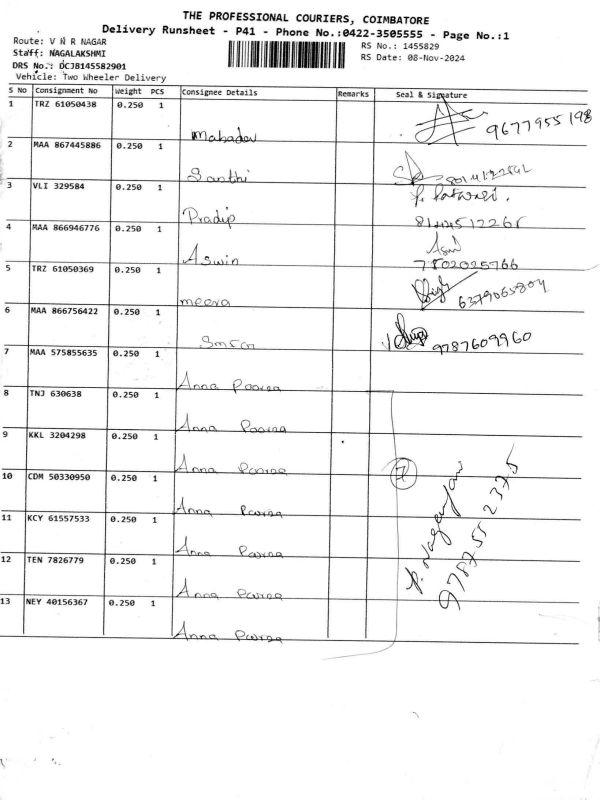 THE PROFESSIONAL COURIERS, COIMBATORE
Delivery Runsheet - P41 - Phone No.:0422-3505555 - Page No.:1
Route: V N R NAGAR
RS No.: 1455829
Staff: NAGALAKSHMI
RS Date: 08-Nov-2024
DRS No.: DCJB145582901
Vehicle: Two Wheeler Delivery
S No Consignment No Weight PCS Consignee Details Remarks Seal & Signature
1 TRZ 61050438 0.250 1
Mahadev 9677955198
2 MAA 867445886 0.250 1
Santhi
3 VLI 329584 0.250 1
Pradip
4 MAA 866946776 0.250 1
Aswin 7802025766
5 TRZ 61050369 0.250 1
meera 6379065804
6 MAA 866756422 0.250 1
9787609960
7 MAA 575855635 0.250 1
Anna Poorna
8 TNJ 630638 0.250 1
Anna Poorna
9 KKL 3204298 0.250 1
Anna Poorna
10 CDM 50330950 0.250 1
7
Anna Poorna
11 KCY 61557533 0.250 1
Anna Poorna
12 TEN 7826779 0.250 1
Anna Poorna
13 NEY 40156367 0.250 1
Anna Poorna
9787552375